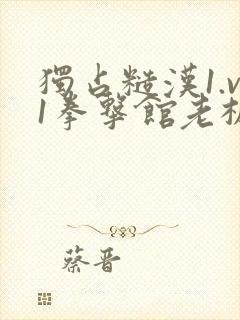 獨占糙漢1.v
1拳擊館老板
蔡晋